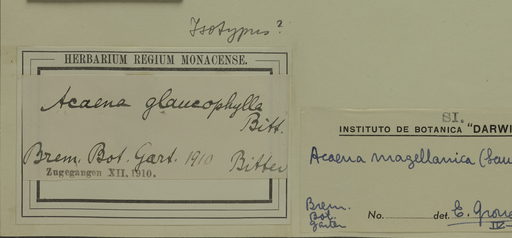 Isotypus?
HERBARIUM REGIUM MONACENSE.
Acaena glaucophylla
Bitt.
Brem. Bot. Gart. 1910 Bitter
Zugegangen XII. 1910.
SI.
INSTITUTO DE BOTANICA "DARWI
Acaena magellanica (Lam
Brem.
Bot.
Garten
No. det. E. Gron
IX-